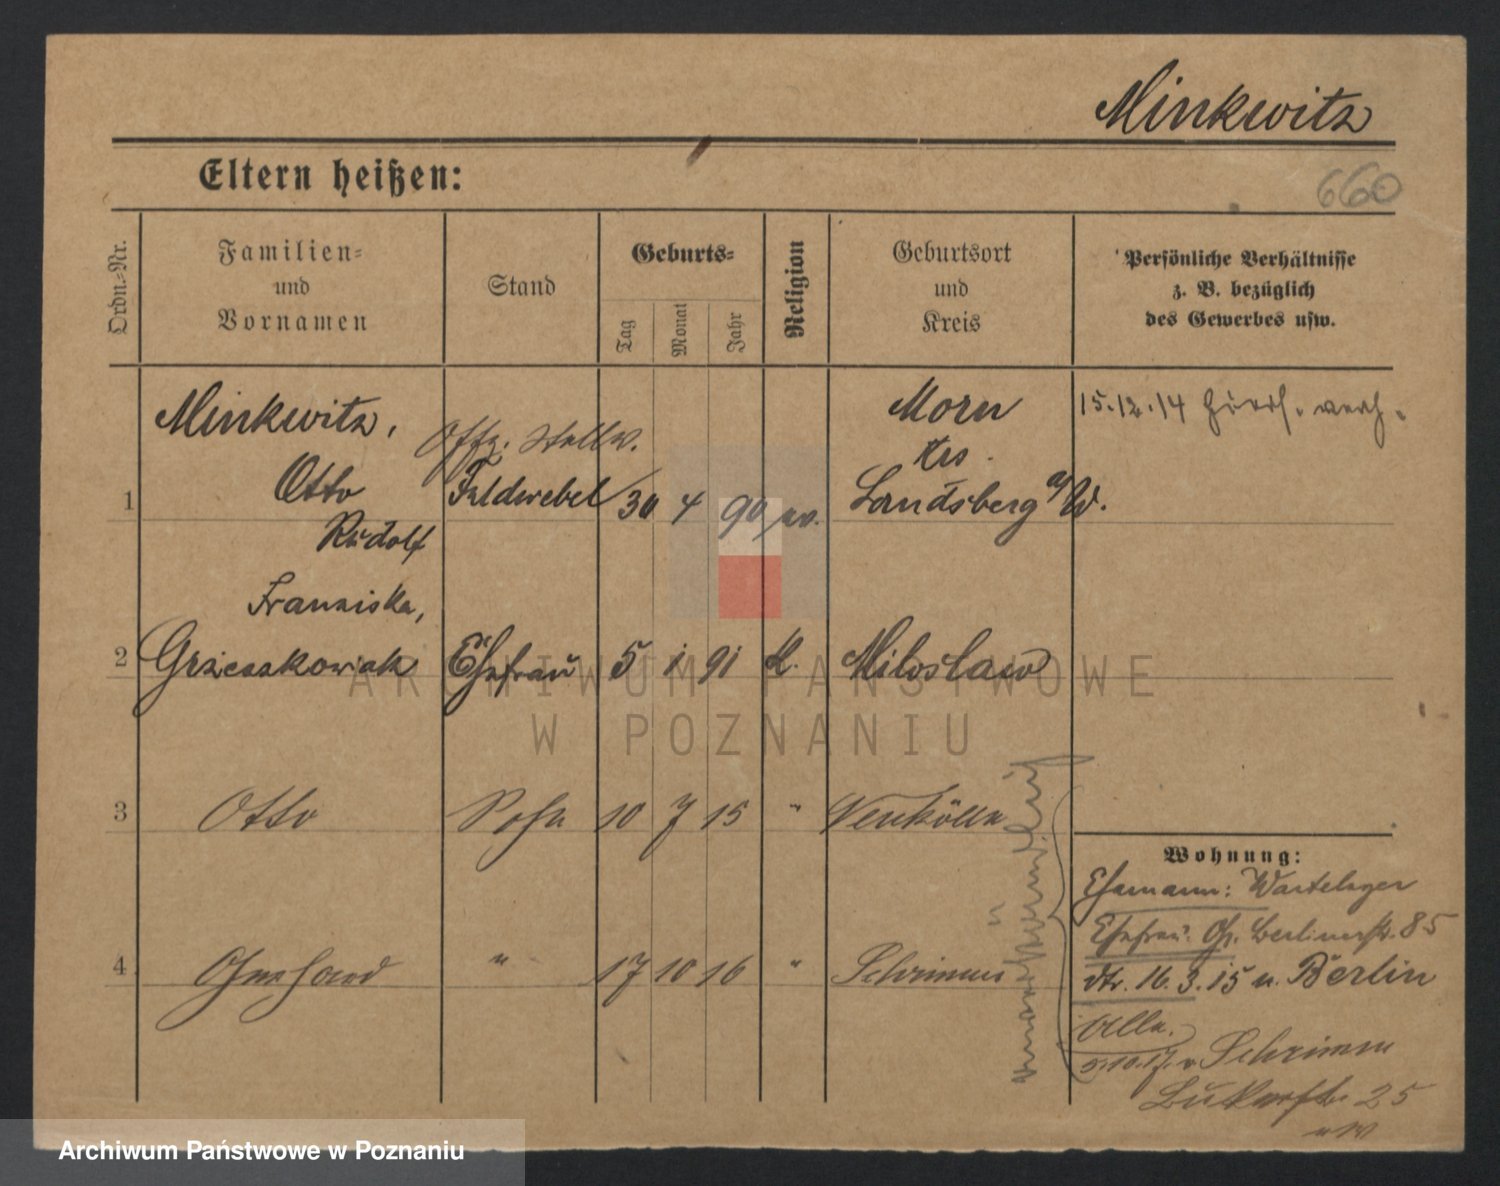 Minkwitz
Eltern heißen:
660
Ordn.-Nr.
Familien-
und
Vornamen
Stand
Geburts-
Tag
Monat
Jahr
Religion
Geburtsort
und
Kreis
Persönliche Verhältnisse
z. B. bezüglich
des Gewerbes usw.
Minkwitz,
Offz. Stellv.
Morn
15.12.14
Krs.
1 Otto Feldwebel 30 4 90 ev. Landsberg a/W.
Rudolf
Franziska,
2 Grzeszkowiak Ehefrau 5 1 91 k. Miloslaw
3 Otto Sohn 10 7 15 " Neukölln
4 Gerhard " 17 10 16 " Schrimm
Wohnung:
Ehemann: Wartelager
Ehefrau: Gr. Berlinerstr. 85
dtr. 16.3.15 n. Berlin
Alle.
5.10.17. v Schrimm
Bukerstr. 25
ARCHIWUM PAŃSTWOWE
W POZNANIU
Archiwum Państwowe w Poznaniu